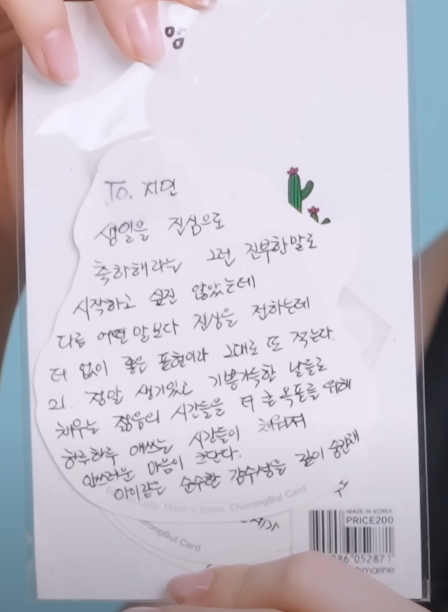 To. 지연
생일을 진심으로
축하해라는 그런 진부한말로
시작하고 싶진 않았는데
다른 어떤 말보다 진심을 전하는데
더 없이 좋은 표현이라 그대로 또 적는다.
21. 정말 생기있고 기쁨가득한 날들로
채우는 젊음의 시간들을 더 큰 목표를 위해
하루하루 애쓰는 시간들이 채워져
안쓰러운 마음이 크단다.
아이같은 순수한 감수성을 같이
Made in Korea ChorongBul Card
ChorongBul Card
MADE IN KOREA
PRICE200
086052871
marine